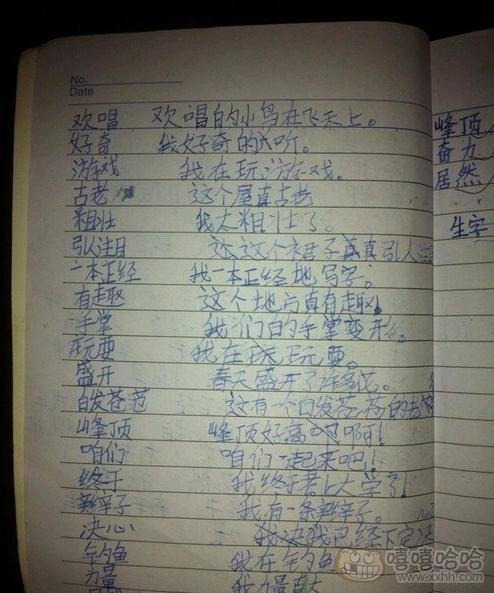 No.
Date
欢唱 欢唱的小鸟在飞天上。
好奇 我好奇的大听。
游戏 我在玩游戏。
古老 这个屋真古老
粗壮 我太粗壮了。
引人注目 这个裙子真引人注
一本正经 我一本正经地写字。
有趣 这个地方真有趣!
手掌 我们的手掌变
玩耍 我在玩耍。
盛开 春天盛开了许多花。
白发苍苍 这有一个白发苍苍的老
峰顶 峰顶好高啊!
咱们 咱们一起来吧!
终于 我终于考上大学了!
辫子 我有一条辫子。
决心 我已经下定决
钓鱼 我在钓鱼
力量 我力量真大
峰顶
奋力
居然
生字
嘻嘻哈哈
www.xxhh.com